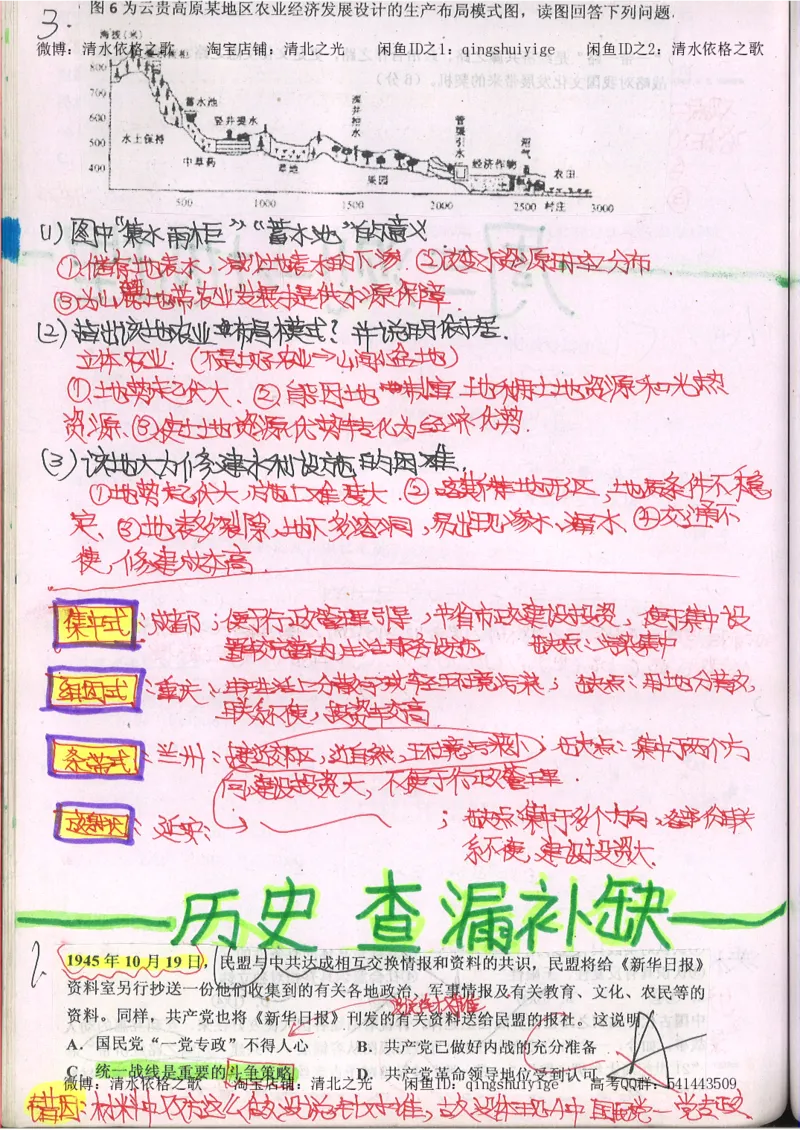 3.
图 6 为云贵高原某地区农业经济发展设计的生产布局模式图，读图回答下列问题.
微博：清水依格之歌 淘宝店铺：清北之光 闲鱼ID之1：qingshuiyige 闲鱼ID之2：清水依格之歌
海拔(米)
800
700
600
500
400
蓄水池
竖井提水
水土保持
中草药
果园
管道引水
经济作物
沼气
农田
500 1000 1500 2000 2500 村庄 3000
(1) 图中“集水雨柜”“蓄水池”的意义
①储存地表水，减少地表水的下渗. ②改变水资源时空分布
③为山腰地带农业发展提供水源保障.
(2) 指出该地农业布局模式？并说明依据.
立体农业. (不是土好农业→山间盆地)
①土地势起伏大，②自然因地制宜 土地利用土地资源和光热
资源、③使土地资源优势转化为经济优势.
(3) 该地大力修建水利设施的困难.
①地势起伏大，施工难度大 ②喀斯特地形区，地质条件不稳
定、③地表多裂隙，地下多溶洞，易出现渗水、漏水、④交通不
便，修建成本高
集中式：成都：便于行政管理引导，节省市政建设投资，便于集中设
置较完善的生活服务设施. 缺点：污染集中
组团式：重庆：生产生活上分散利于减轻环境污染； 缺点：用地分散，
联系不便，投资较高
条带式：兰州：接近郊区，近自然，环境污染小；缺点：集中于两个方
向，建设投资大，不便于行政管理.
放射状：延安： ；缺点：集中于多个方向，各部分联
系不便，建设投资大.
历史 查漏补缺
1945 年 10 月 19 日，民盟与中共达成相互交换情报和资料的共识，民盟将给《新华日报》
资料室另行抄送一份他们收集到的有关各地政治、军事情报及有关教育、文化、农民等的
资料。同样，共产党也将《新华日报》刊发的有关资料送给民盟的报社。这说明
A
A. 国民党“一党专政”不得人心 B. 共产党已做好内战的充分准备
C. 统一战线是重要的斗争策略 D. 共产党革命领导地位受到认可
微博：清水依格之歌 淘宝店铺：清北之光 闲鱼ID：qingshuiyige 高考QQ群：541443509
错因：材料中双方这么做没说针对谁，故没体现A中国民党一党专政